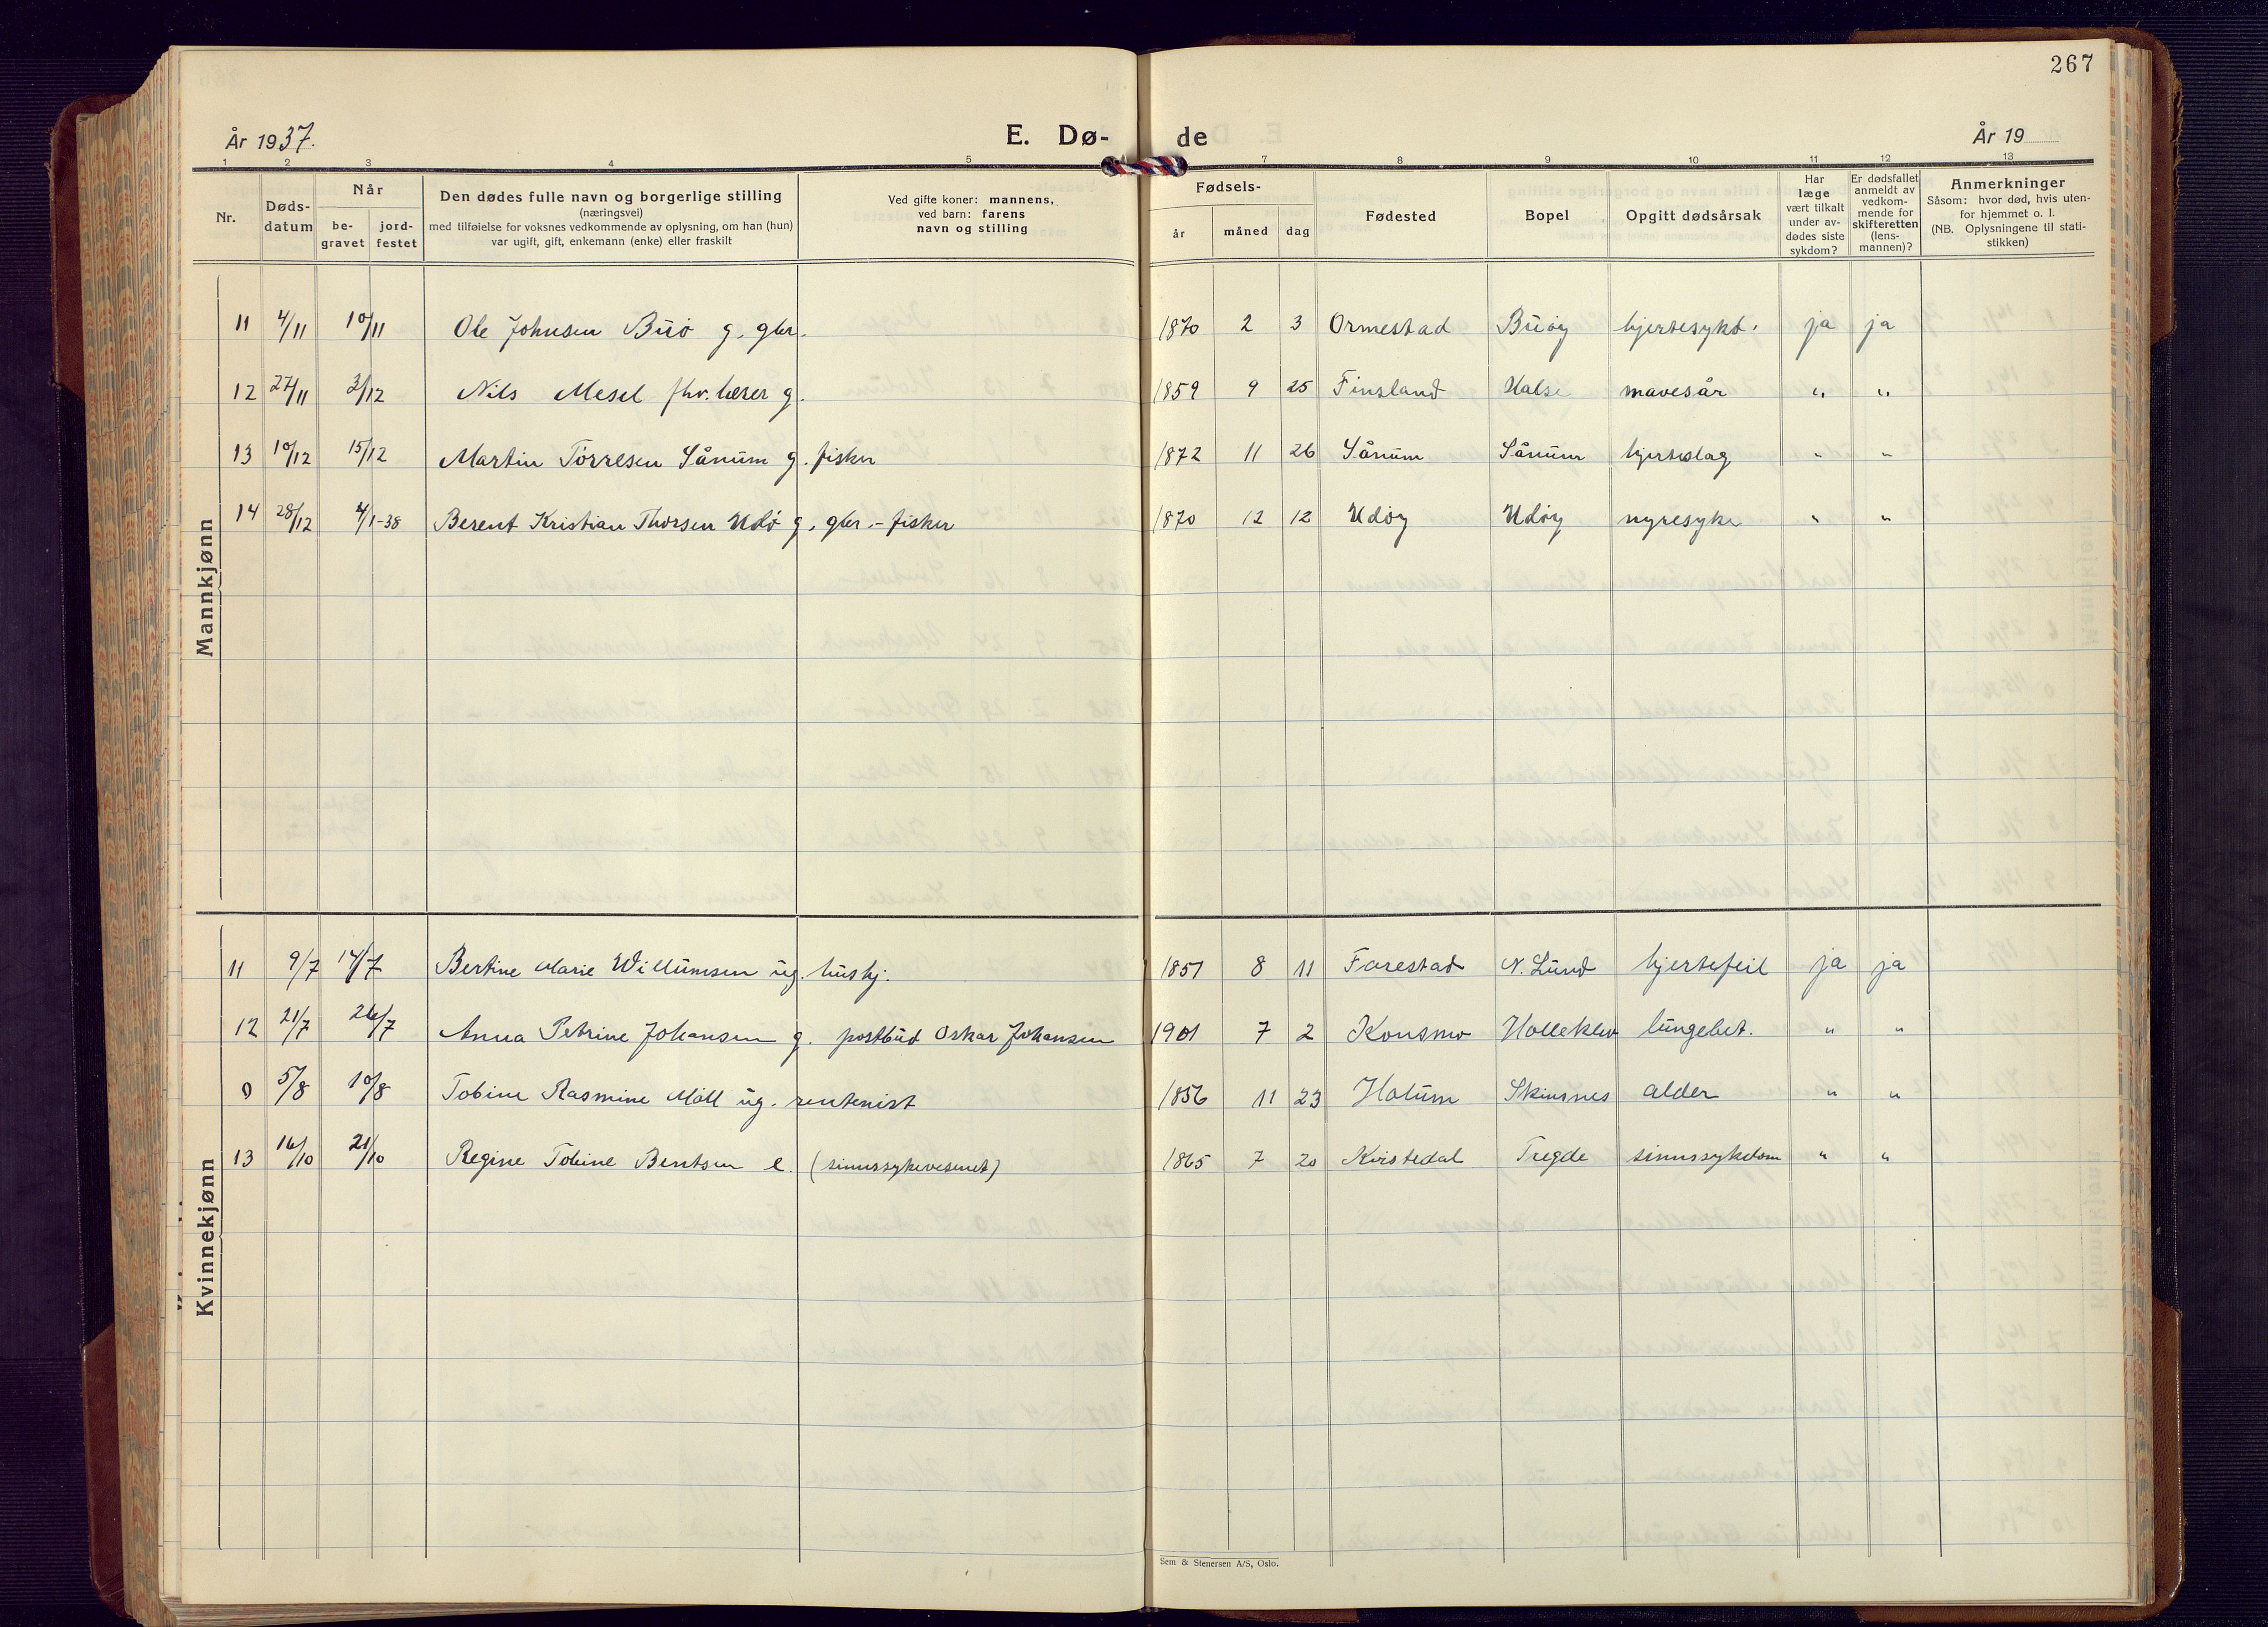 267
År 1937.
E. Dø- de
År 19
1 2 3 4 5 7 8 9 10 11 12 13
Nr.
Døds-
datum
Når
be-
gravet
jord-
festet
Den dødes fulle navn og borgerlige stilling
(næringsvei)
med tilføielse for voksnes vedkommende av oplysning, om han (hun)
var ugift, gift, enkemann (enke) eller fraskilt
Ved gifte koner: mannens,
ved barn: farens
navn og stilling
Fødsels-
år måned dag
Fødested
Bopel
Opgitt dødsårsak
Har
læge
vært tilkalt
under av-
dødes siste
sykdom?
Er dødsfallet
anmeldt av
vedkom-
mende for
skifteretten
(lens-
mannen)?
Anmerkninger
Såsom: hvor død, hvis uten-
for hjemmet o. l.
(NB. Oplysningene til stati-
stikken)
Mannkjønn
11 4/11 10/11 Ole Johnsen Buø g. gbr. 1870 2 3 Ormestad Buøy hjertesykd. ja ja
12 27/11 2/12 Nils Mesel fhv. lærer g. 1859 9 25 Finsland Halse mavesår " "
13 10/12 15/12 Martin Torresen Sånum g. fisker 1872 11 26 Sånum Sånum hjerteslag " "
14 28/12 4/1-38 Berent Kristian Thorsen Udø g. gbr. - fisker 1870 12 12 Udøy Udøy nyresyke " "
Kvinnekjønn
11 9/7 14/7 Bertine Marie Willumsen ug. hushj. 1851 8 11 Farestad N. Lund hjertefeil ja ja
12 21/7 26/7 Anna Petrine Johansen g. postbud Oskar Johansen 1901 7 2 Konsmo Holleklev lungebet. " "
5/8 10/8 Tobine Rasmine Moll ug. rentenist 1856 11 23 Holum Skinsnes alder " "
13 16/10 21/10 Regine Tobine Bentsen e. (sinnssykevesenet) 1865 7 20 Kvistedal Tregde sinnssykdom " "
Sem & Stenersen A/S, Oslo.